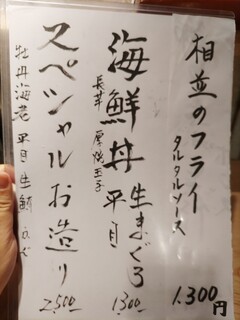 相並のフライ
タルタルソース
1.300円
海鮮丼 生まぐろ
平目
長芋 厚焼玉子
1300
スペシャルお造り
牡丹海老 平目 生鯖 ふぐ
2,500